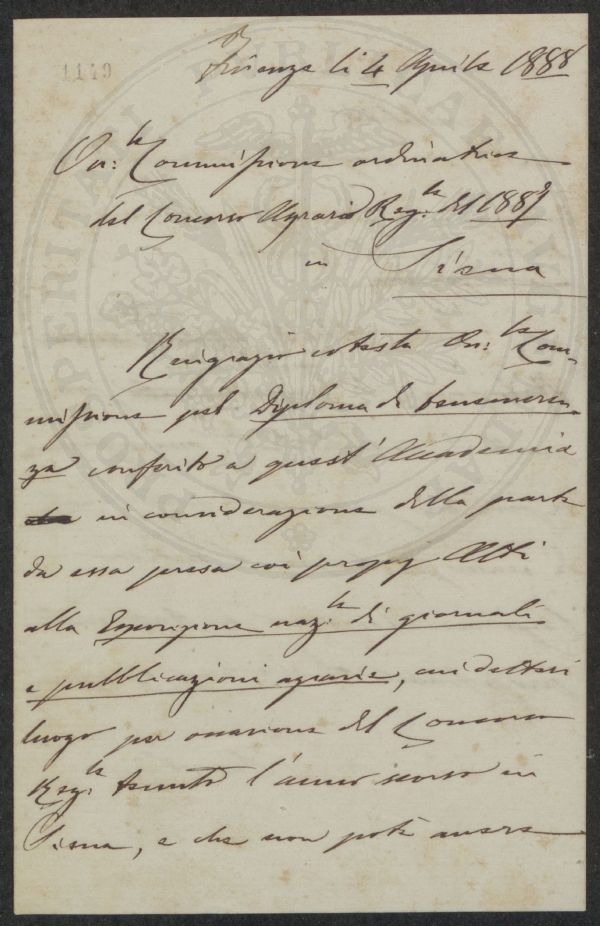 1119
Firenze li 4 Aprile 1888
On:le Commissione ordinatrice
del Concorso Agrario Reg:le del 1887
in Siena
Ringrazio cotesta On:le Com-
missione pel Diploma di benemeren-
za conferito a quest'Accademia
in considerazione della parte
da essa presa coi propri Atti
alla Esposizione naz:le di giornali
e pubblicazioni agrarie, cui dettesi
luogo per occasione del Concorso
Reg:le tenuto l'anno scorso in
Siena, e che non potè avere